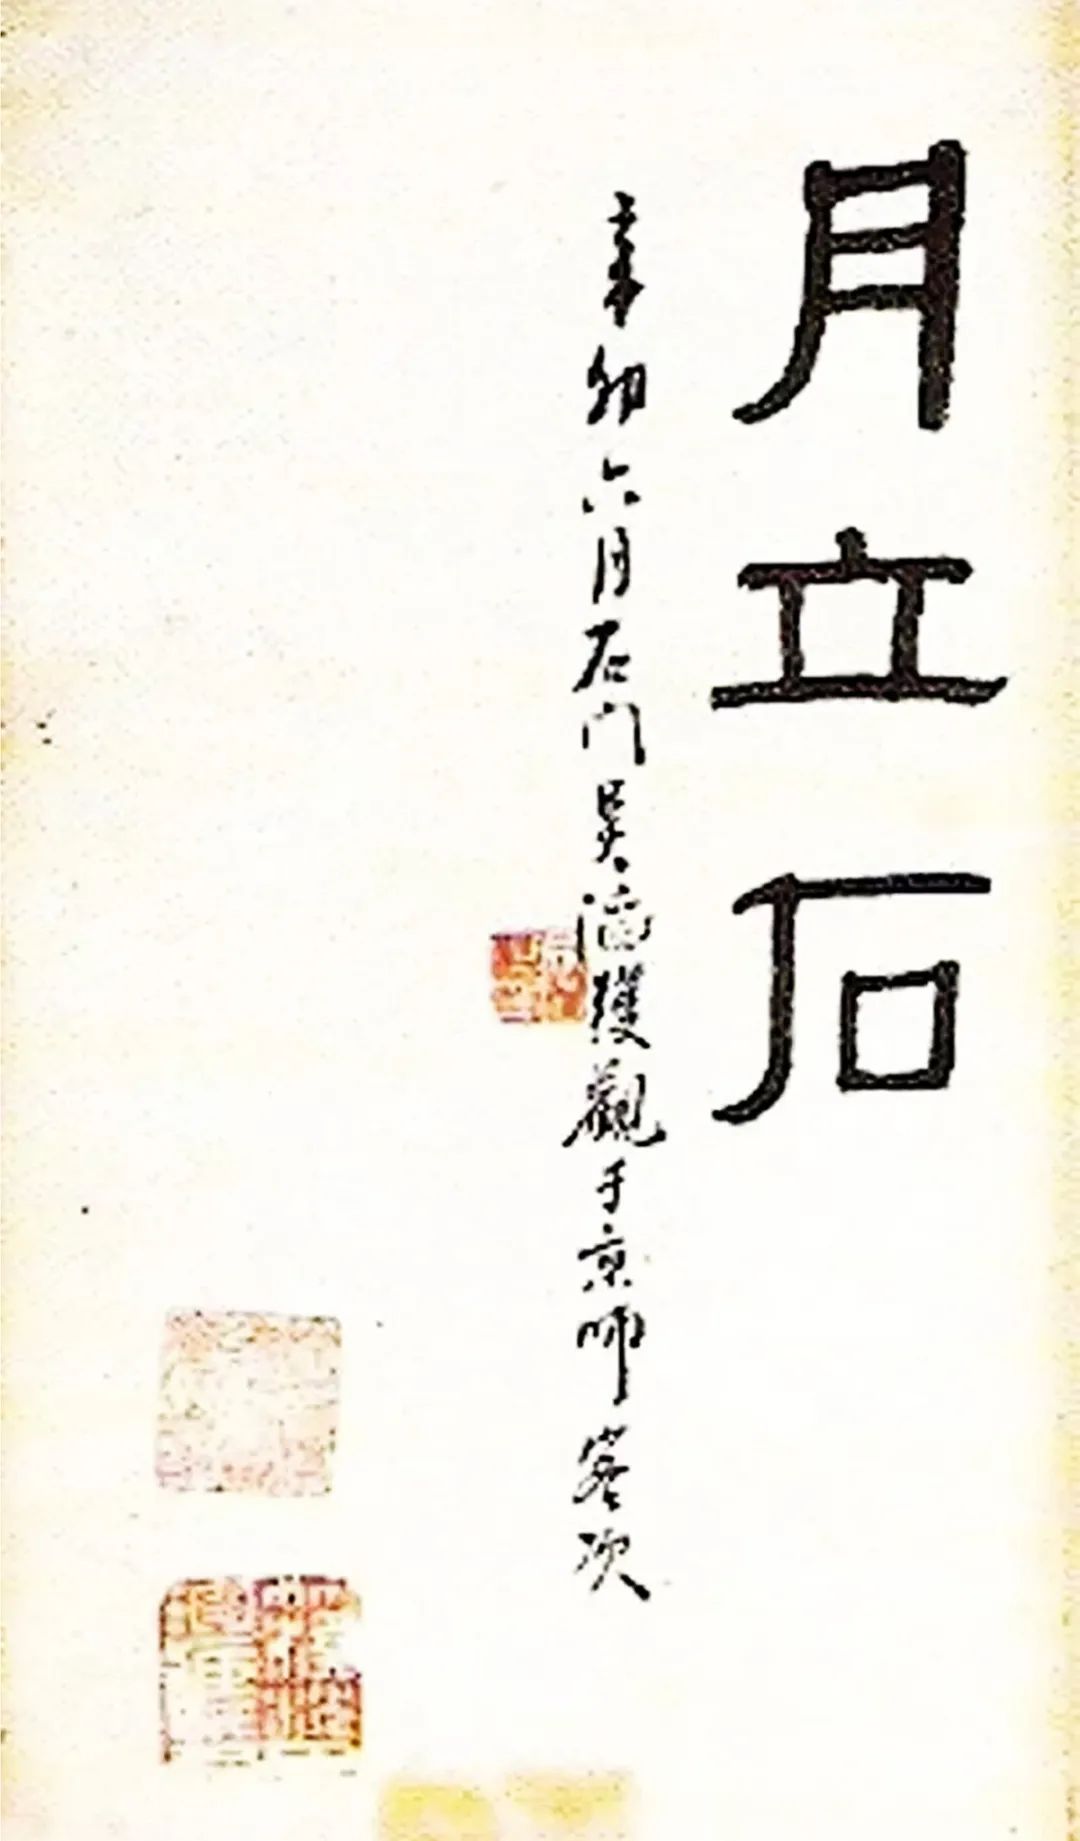 月立石
辛卯六月石门吴滔獲觀于京師客次